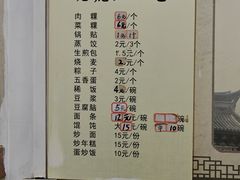 肉粿 6元/个
菜粿 6元/个
锅贴
蒸饺 2元/3个
生煎包 1.5元/个
烧麦 2元/个
粽子 4元/个
五香蛋 2元/个
稀饭 4元/碗
豆浆 3元/碗
豆腐脑 5元/碗
面条 12元/碗
馄饨 大15元/碗 10碗
炒面 15元/份
炒年糕 15元/份
蛋炒饭 10元/份